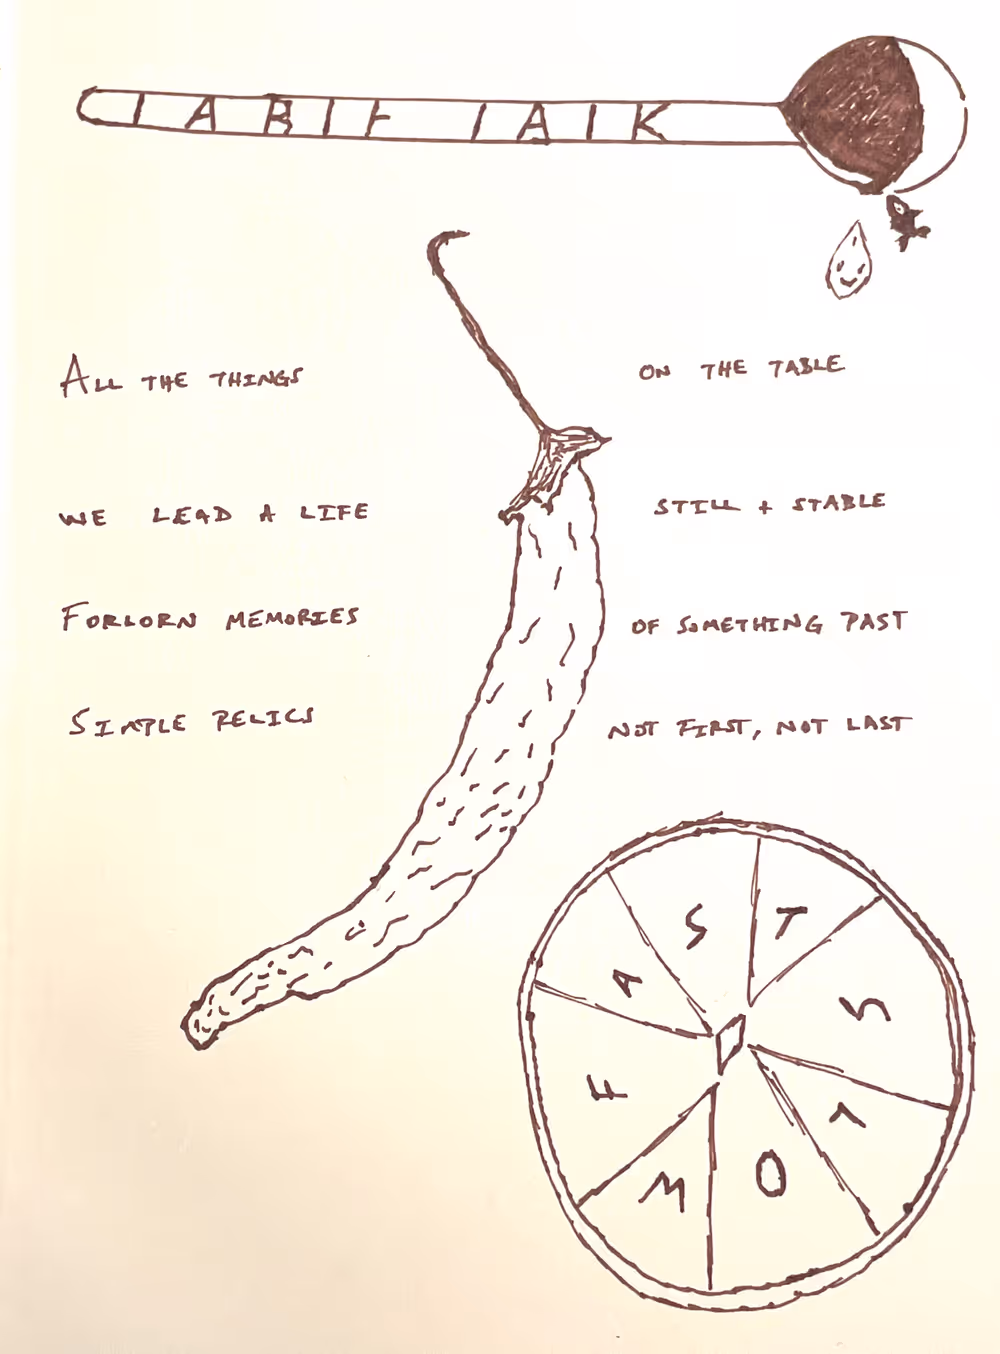 TABLE TALK
ALL THE THINGS ON THE TABLE
WE LEAD A LIFE STILL + STABLE
FORLORN MEMORIES OF SOMETHING PAST
SIMPLE RELICS NOT FIRST, NOT LAST
FAST SLOW